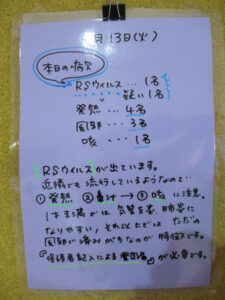 月13日(火)
本日の病欠
RSウイルス … 1名
〃 疑い 1名
発熱 … 4名
風邪 … 3名
咳 … 1名
RSウイルスが出ています。
近隣でも流行しているようなので…
①発熱 ②鼻汁 → ③咳 に注意。
1才まででは 気管支炎、肺炎に
なりやすい、それ以上では ただの
風邪で済みがちなのが 特徴です。
『保護者記入による登園届』が必要です。